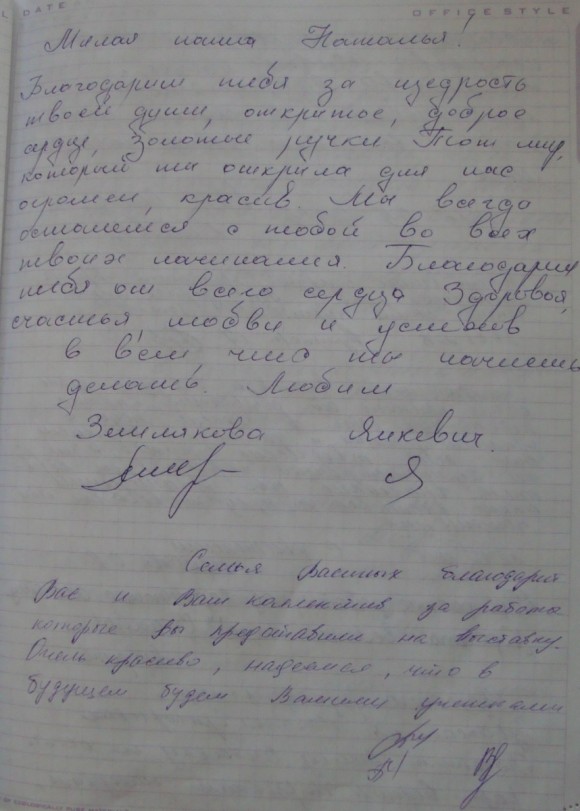 DATE
OFFICE STYLE
Милая наша Наталья!
Благодарим тебя за щедрость
твоей души, открытое, доброе
сердце, Золотые ручки Тот мир,
который ты открыла для нас
огромен, красив. Мы всегда
остаемся с тобой во всех
твоих начинания. Благодарим
тебя от всего сердца Здоровья,
счастья, любви и успехов
в всем, что ты начнешь
делать. Любим
Землякова Янкевич.
Я
Семья благодарит
Вас и Ваш коллектив за работы
которые вы представили на выставку.
Очень красиво, надеемся, что в
будущем будем Вашими